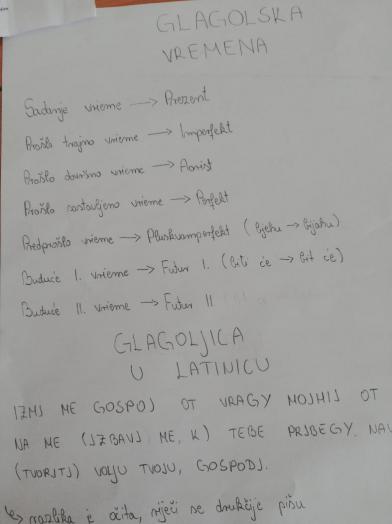 GLAGOLSKA
VREMENA
Sadanje vrieme → Prezent
Prošlo trajno vrieme → Imperfekt
Prošlo dovršno vrieme → Aorist
Prošlo sastavljeno vrieme → Perfekt
Predprošlo vrieme → Pluskvamperfekt (bjehu → bijahu)
Buduće I. vrieme → Futur I. (biti će → bit će)
Buduće II. vrieme → Futur II
GLAGOLJICA
U LATINICU
IZMJ ME GOSPOJ OT VRAGY MOJHIJ OT
NA ME (JZBAVJ ME, K) TEBE PRJBEGY. NAV
(TVORJTJ) VOLJU TVOJU, GOSPODJ.
↳ razlika je očita, riječi se drukčije pišu